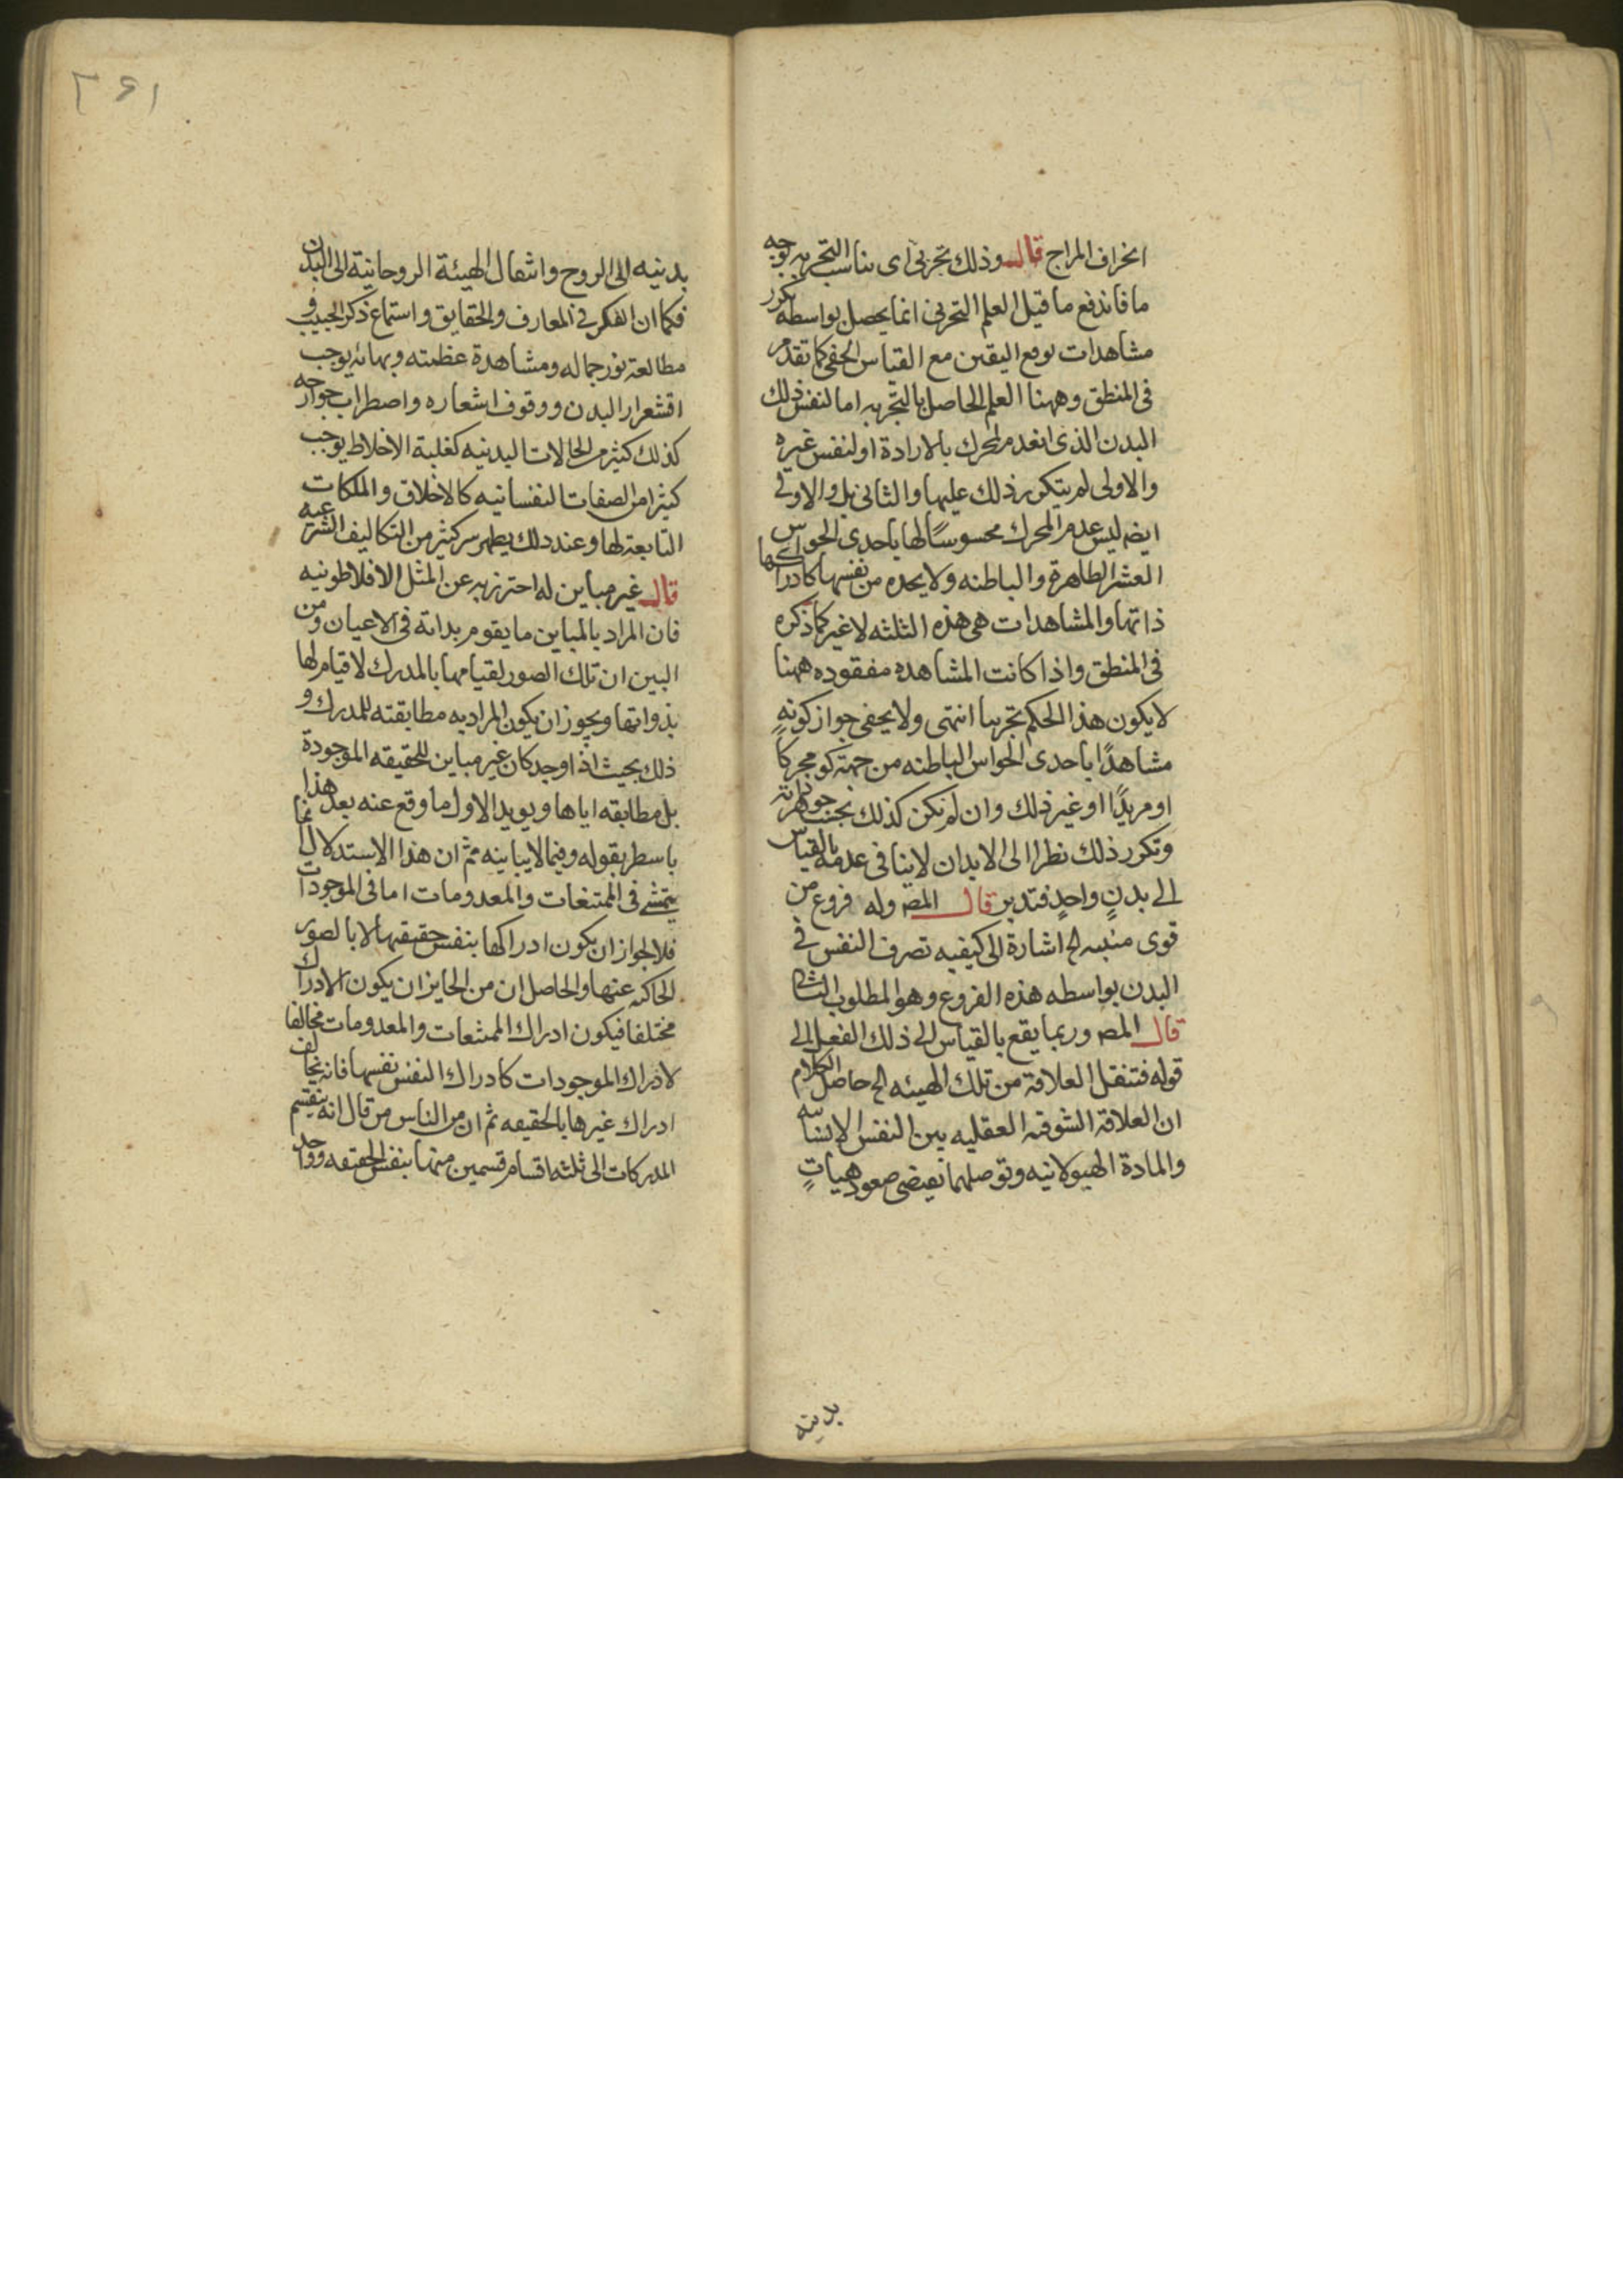 انحراف المزاج قال وذلك تجربى اى يناسب التجربه بوجه
ما فاندفع ما قيل العلم التجربى انما يحصل بواسطه تكرر
مشاهدات توقع اليقين مع القياس الخفى كما تقدم
فى المنطق وههنا العلم الحاصل بالتجربه اما لنفس ذلك
البدن الذى انعدم المحرك بالارادة او لنفس غيره
والاولى لم يتكرر ذلك عليها والثانى بل والاولى
ايضا ليس عدم المحرك محسوسًا لها باحدى الحواس
العشر الظاهرة والباطنه ولا يجده من نفسها كادراكها
ذاتها والمشاهدات هى هذه الثلثه لا غير كما ذكره
فى المنطق واذا كانت المشاهده مفقوده ههنا
لا يكون هذا الحكم تجربيا انتهى ولا يخفى جواز كونه
مشاهدًا باحدى الحواس الباطنه من جهة كونه محركًا
او مريدًا او غير ذلك وان لم تكن كذلك بحسب جوهر ذاته
وتكرر ذلك نظرا الى الابدان لا ينافى عدمه بالقياس
الى بدنٍ واحدٍ فتدبر قال المص وله فروع من
قوى منبثه الخ اشارة الى كيفيه تصرف النفس فى
البدن بواسطه هذه الفروع وهو المطلوب الثالث
قال المص وربما يقع بالقياس الى ذلك الفعل الى
قوله فتنقل العلاقة من تلك الهيئه الخ حاصل الكلام
ان العلاقة الشوقيه العقليه بين النفس الانسانيه
والمادة الهيولانيه وتوصلهما تقتضى صعود هيئاتٍ
بدنيه
بدنيه الى الروح وانتقال الهيئة الروحانية الى البدن
فكما ان الفكر فى المعارف والحقايق واستماع ذكر الحبيب و
مطالعة نور جماله ومشاهدة عظمته وبهائه يوجب
اقشعرار البدن ووقوف اشعاره واضطراب جوارحه
كذلك كثير من الحالات البدنيه كغلبة الاخلاط يوجب
كثيرا من الصفات النفسانيه كالاخلاق والملكات
التابعة لها وعند ذلك يظهر سر كثير من التكاليف الشرعيه
قال غير مباين له احترز به عن المثل الافلاطونيه
فان المراد بالمباين ما يقوم بذاته فى الاعيان ومن
البين ان تلك الصور لقيامها بالمدرك لا قيام لها
بذواتها ويجوز ان يكون المراد به مطابقته للمدرك و
ذلك بحيث اذا وجد كان غير مباين للحقيقه الموجودة
بل مطابقه اياها ويويد الاول ما وقع عنه بعد هذا
باسطر بقوله وفيما لا يباينه ثم ان هذا الاستدلال انما
يتمشى فى الممتنعات والمعدومات اما فى الموجودات
فلا لجواز ان يكون ادراكها بنفس حقيقتها لا بالصور
الحاكيه عنها والحاصل ان من الجايز ان يكون الادراك
مختلفا فيكون ادراك الممتنعات والمعدومات مخالفا
لادراك الموجودات كادراك النفس نفسها فانه يخالف
ادراك غيرها بالحقيقه ثم ان من الناس من قال انه ينقسم
المدركات الى ثلثه اقسام قسمين منها بنفس الحقيقه وواحد